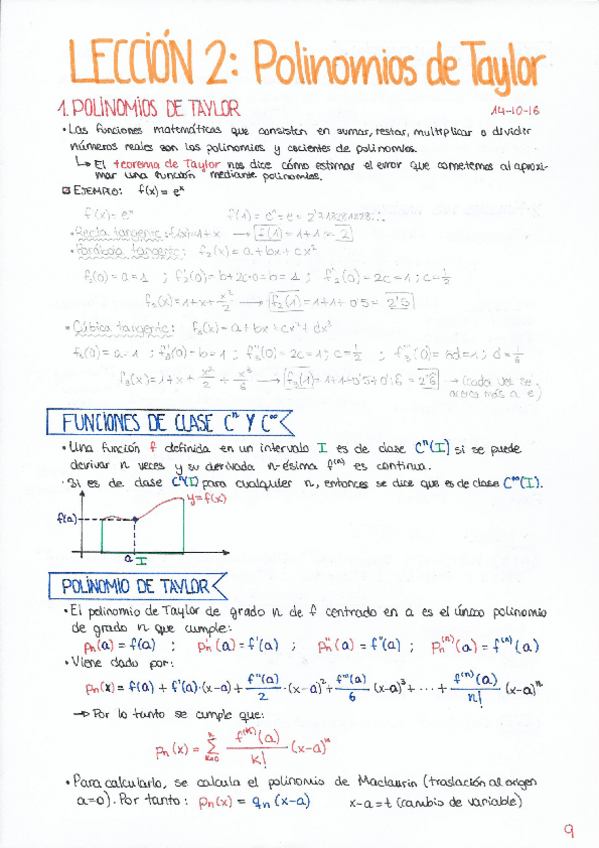 LECCIÓN 2: Polinomios de Taylor
1. POLINOMIOS DE TAYLOR 14-10-16
• Las funciones matemáticas que consisten en sumar, restar, multiplicar o dividir
números reales son los polinomios y cocientes de polinomios.
↳ El teorema de Taylor nos dice cómo estimar el error que cometemos al aproxi-
mar una función mediante polinomios.
EJEMPLO: f(x) = eˣ
f(x) = eˣ f(1) = e¹ = e = 2'718281828...
• Recta tangente: f₁(x) = 1+x → f₁(1) = 1+1 = 2
• Parábola tangente: f₂(x) = a + bx + cx²
f₂(0) = a = 1 ; f₂'(0) = b + 2c·0 = b = 1 ; f₂''(0) = 2c = 1 ; c = 1/2
f₂(x) = 1 + x + x²/2 → f₂(1) = 1+1+0'5 = 2'5
• Cúbica tangente: f₃(x) = a + bx + cx² + dx³
f₃(0) = a = 1 ; f₃'(0) = b = 1 ; f₃''(0) = 2c = 1 ; c = 1/2 ; f₃'''(0) = 6d = 1 ; d = 1/6
f₃(x) = 1 + x + x²/2 + x³/6 → f₃(1) = 1+1+0'5+0'16 = 2'6 → (cada vez se
acerca más a e)
FUNCIONES DE CLASE Cⁿ Y C^∞
• Una función f definida en un intervalo I es de clase Cⁿ(I) si se puede
derivar n veces y su derivada n-ésima f⁽ⁿ⁾ es continua.
• Si es de clase Cⁿ(I) para cualquier n, entonces se dice que es de clase C^∞(I).
y = f(x)
f(a)
a I
POLINOMIO DE TAYLOR
• El polinomio de Taylor de grado n de f centrado en a es el único polinomio
de grado n que cumple:
pₙ(a) = f(a) ; pₙ'(a) = f'(a) ; pₙ''(a) = f''(a) ; pₙ⁽ⁿ⁾(a) = f⁽ⁿ⁾(a)
• Viene dado por:
pₙ(x) = f(a) + f'(a)·(x-a) + f''(a)/2 ·(x-a)² + f'''(a)/6 (x-a)³ + ··· + f⁽ⁿ⁾(a)/n! (x-a)ⁿ
→ Por lo tanto se cumple que:
pₙ(x) = Σ_{k=0}^{n} f⁽ᵏ⁾(a)/k! (x-a)ᵏ
• Para calcularlo, se calcula el polinomio de Maclaurin (traslación al origen
a=0). Por tanto: pₙ(x) = qₙ(x-a) x-a = t (cambio de variable)
9